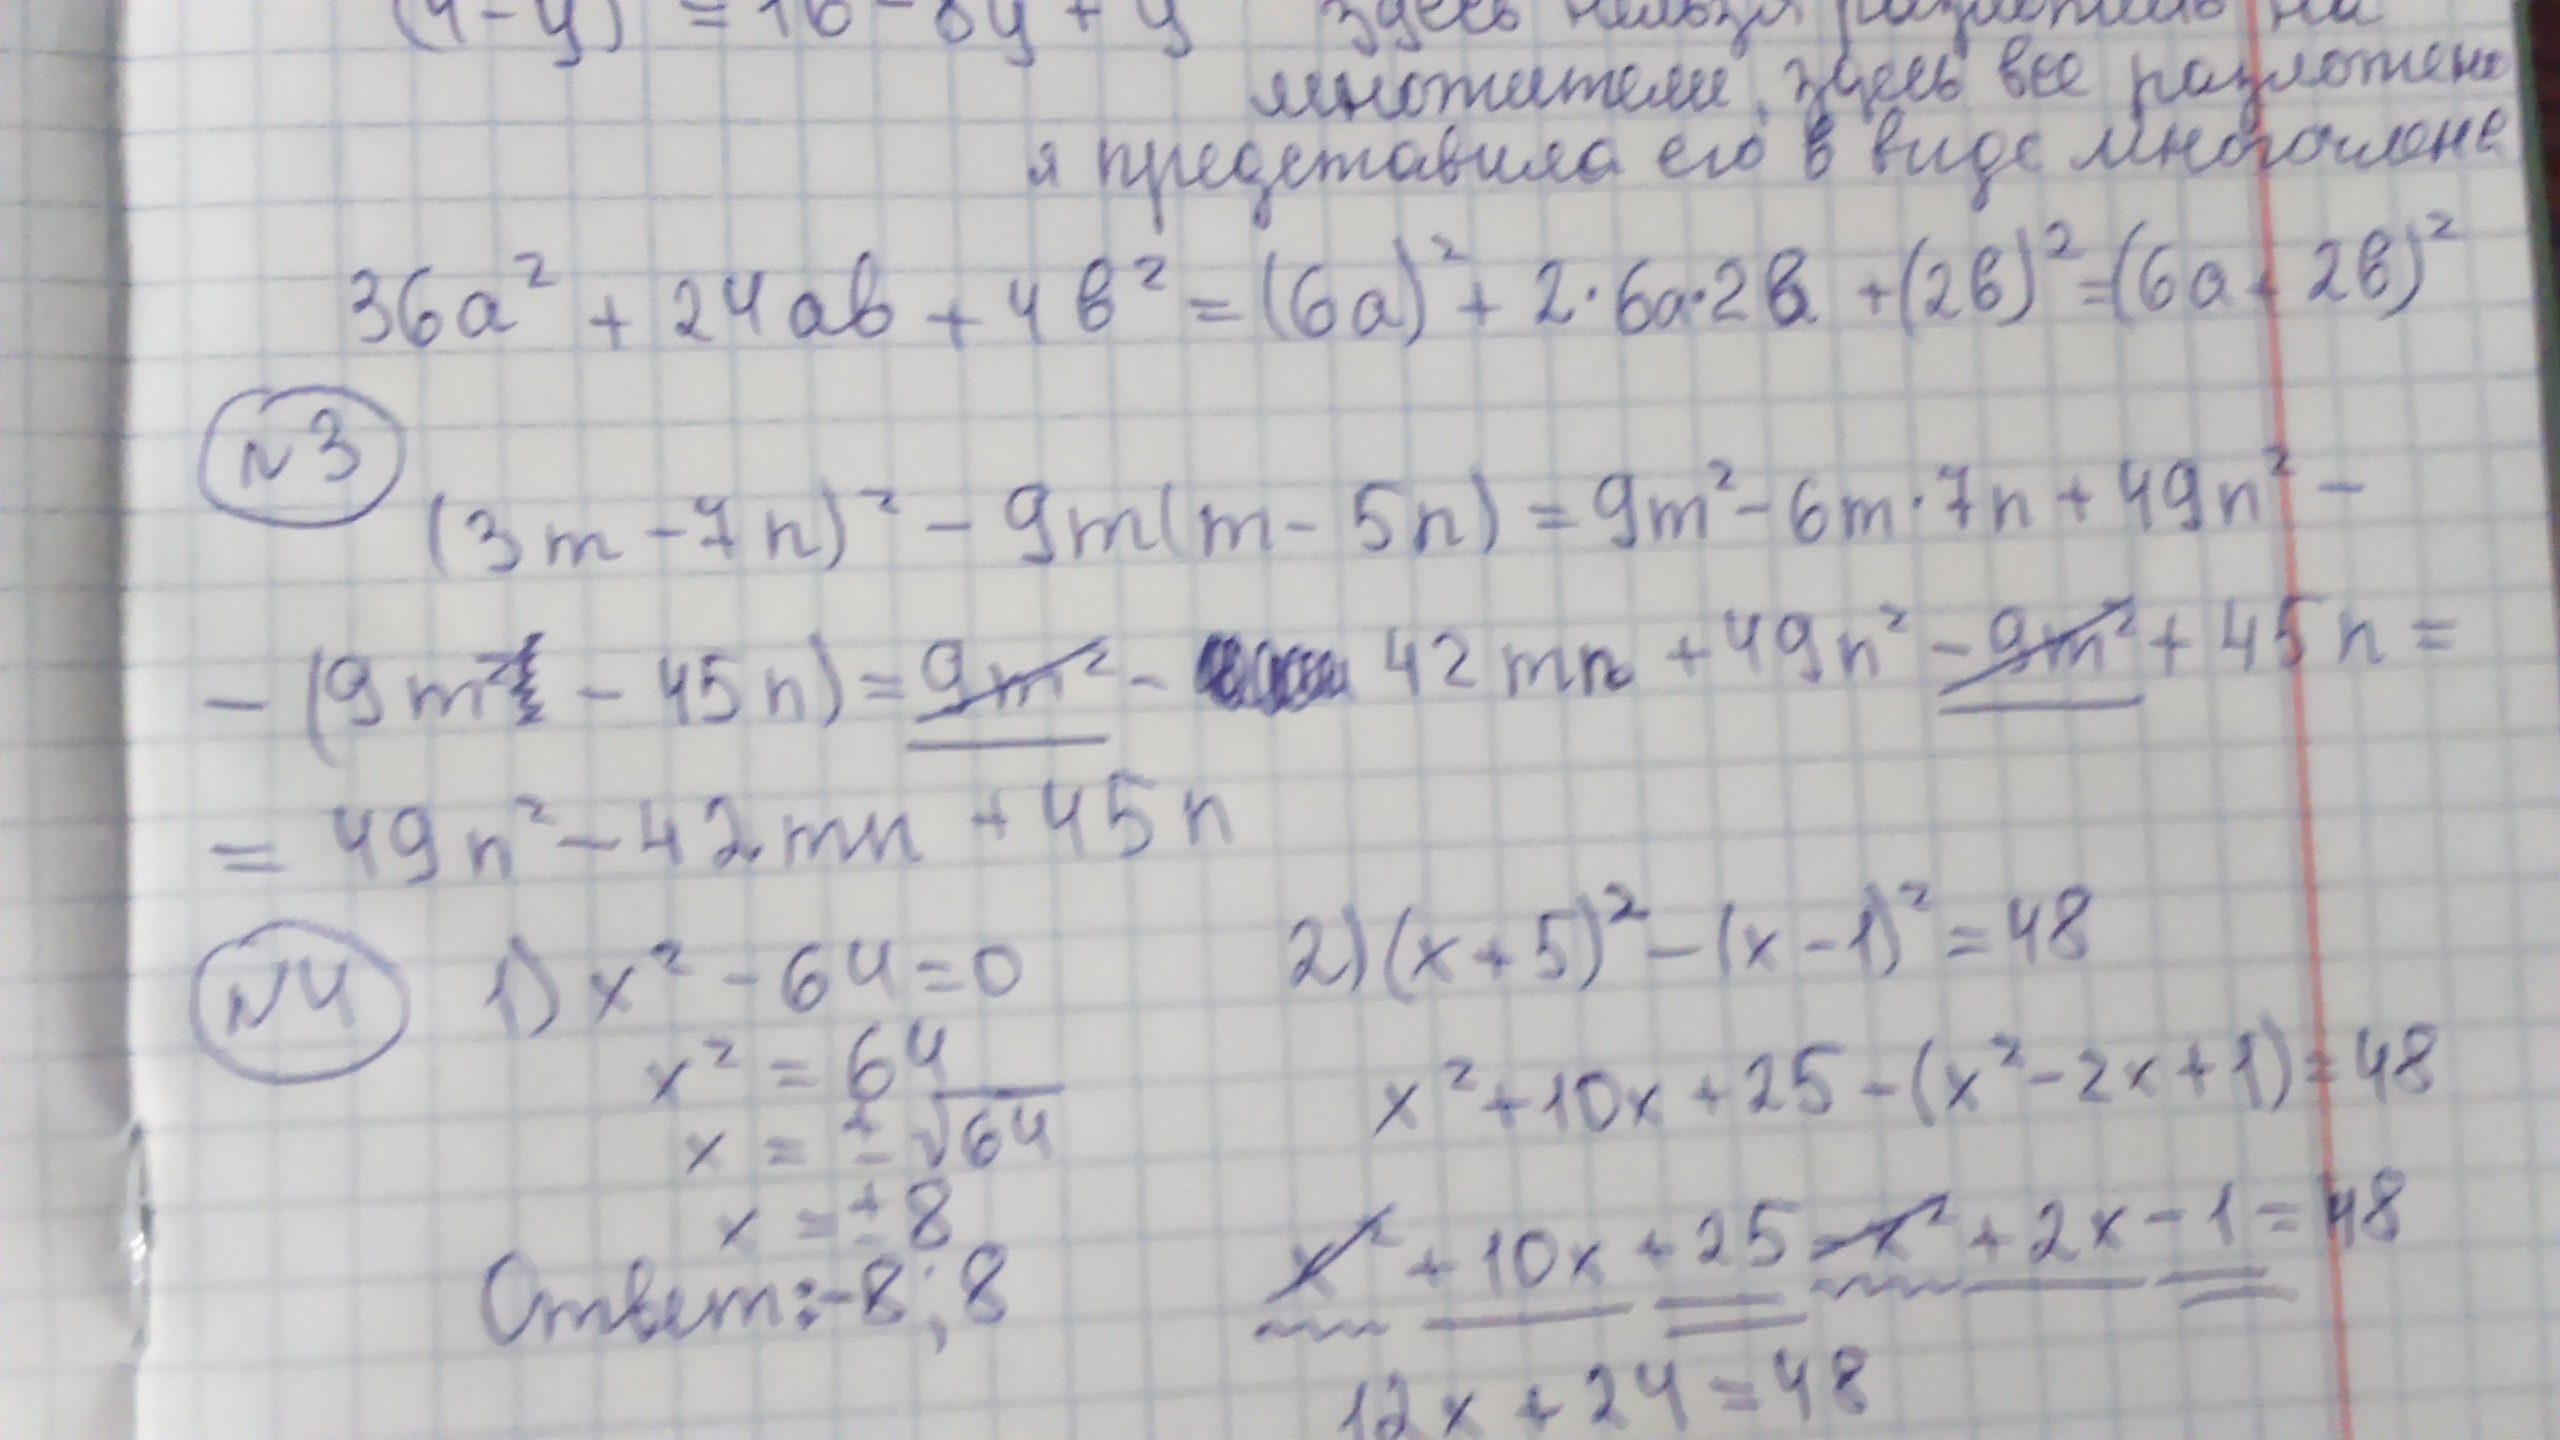 (4 - y)² = 16 - 8y + y² здесь нельзя разложить на
множители, здесь все разложено
я представила его в виде многочлена
36a² + 24ab + 4b² = (6a)² + 2·6a·2b + (2b)² = (6a + 2b)²
№3
(3m - 7n)² - 9m(m - 5n) = 9m² - 6m·7n + 49n² -
- (9m² - 45n) = 9m² - 42mn + 49n² - 9m² + 45n =
= 49n² - 42mn + 45n
№4 1) x² - 64 = 0
x² = 64
x = ±√64
x = ±8
Ответ: -8; 8
2) (x + 5)² - (x - 1)² = 48
x² + 10x + 25 - (x² - 2x + 1) = 48
x² + 10x + 25 - x² + 2x - 1 = 48
12x + 24 = 48